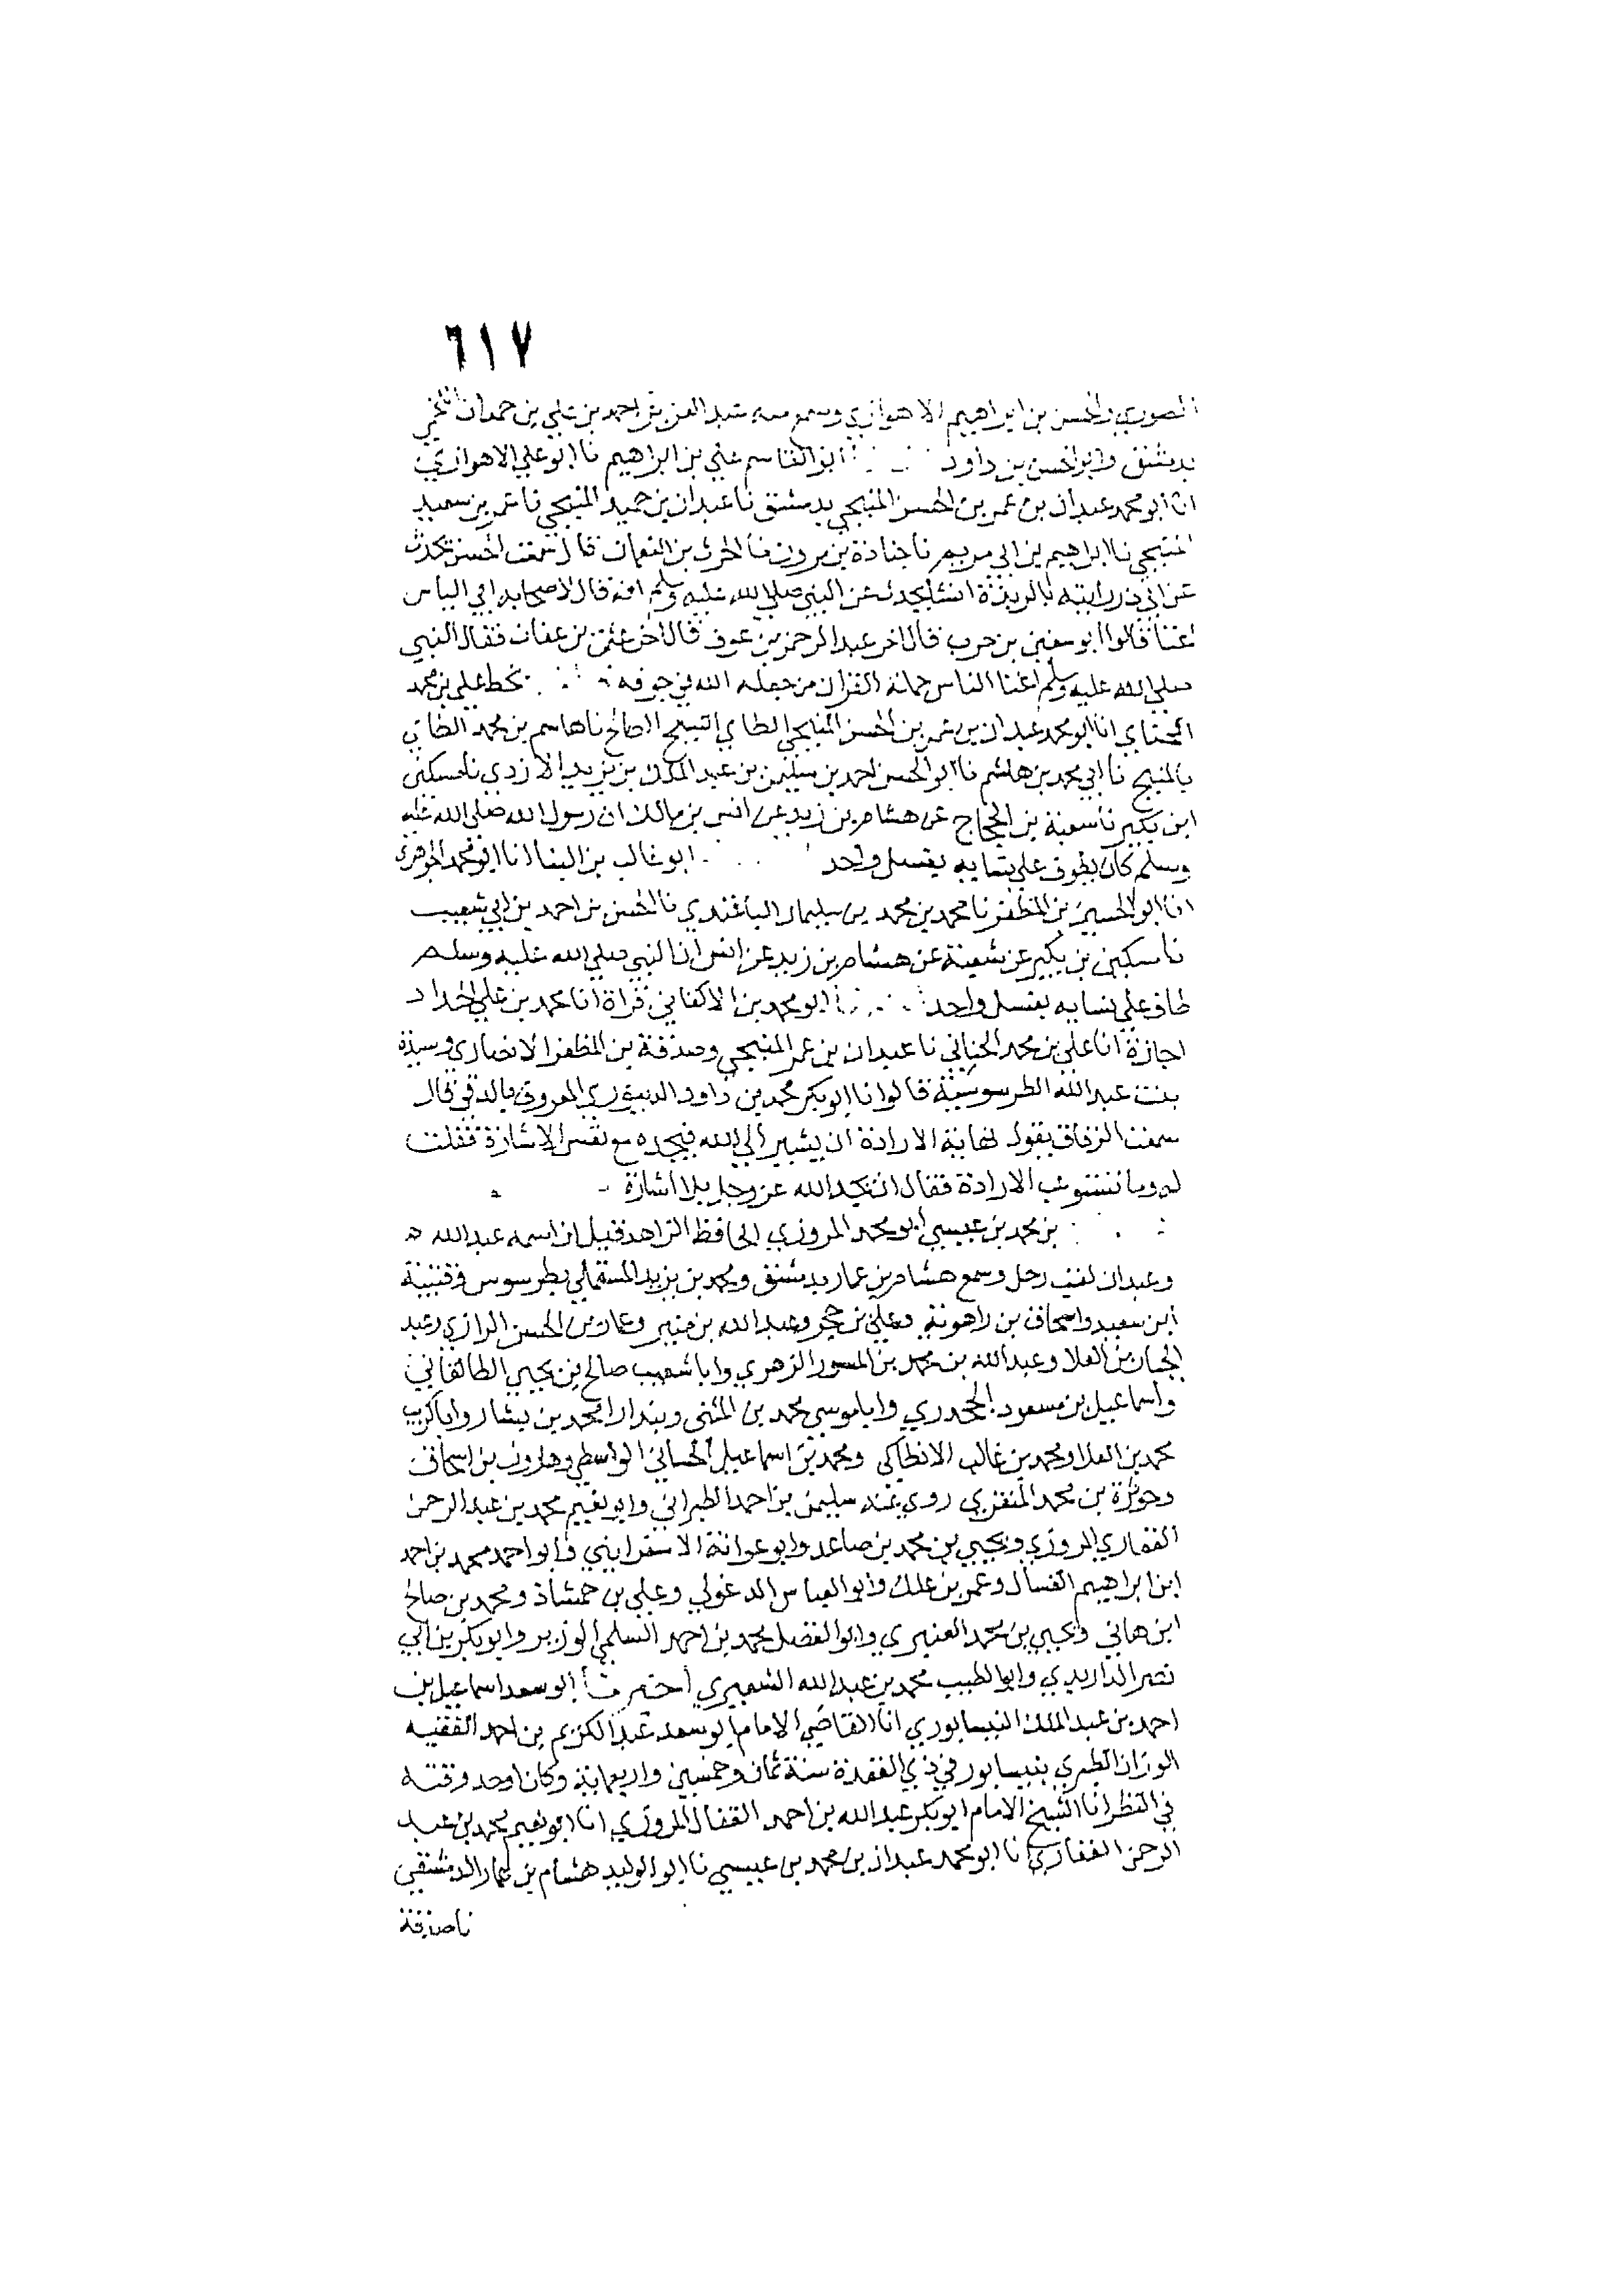 ٦١٧
الصوري والحسن بن ابراهيم الاهوازي وسمع منه عبد العزيز بن احمد بن علي بن حمدان اللخمي
بدمشق وابو الحسن بن داود ابو القاسم علي بن ابراهيم نا ابو علي الاهوازي
انا ابو محمد عبدان بن عمر بن الحسن المنبجي بدمشق نا عبدان بن حميد المنبجي نا عمر بن سعيد
المنبجي نا ابراهيم بن ابي مريم نا جنادة بن مروان نا الحرث بن النعمان قال سمعت الحسن يحدث
عن ابي ذر رايته بالربذة انشا يحدث عن النبي صلى الله عليه وسلم انه قال لاصحابه اي الناس
اغنا قالوا ابو سفين بن حرب قال اخر عبد الرحمن بن عوف قال اخر عثمن بن عفان فقال النبي
صلى الله عليه وسلم اغنا الناس حملة القران من جعله الله في جوفه بخط علي بن محمد
الحناي انا ابو محمد عبدان بن عمر بن الحسن المنبجي الطاي الشيخ الصالح نا هاسم بن محمد الطاي
بالمنبج نا ابي محمد بن هاشم نا ابو الحسن احمد بن سليمن بن عبد الملك بن يزيد الازدي نا مسكين
ابن بكير نا شعبة بن الحجاج عن هشام بن زيد عن انس بن مالك ان رسول الله صلى الله عليه
وسلم كان يطوف على نسايه بغسل واحد ابو غالب بن البنا انا ابو محمد الجوهري
انا ابو الحسين بن المظفر نا محمد بن محمد بن سليمان الباغندي نا الحسن بن احمد بن ابي شعيب
نا مسكين بن بكير عن شعبة عن هشام بن زيد عن انس ان النبي صلى الله عليه وسلم
طاف على نسايه بغسل واحد ابو محمد بن الاكفاني قراة انا محمد بن علي الحداد
اجازة انا علي بن محمد الحنائي نا عبدان بن عمر المنبجي وصدقة بن المظفر الانصاري وسيدة
بنت عبد الله الطرسوسية قالوا نا ابو بكر محمد بن داود الدينوري المعروف بالدقي قال
سمعت الزقاق يقول نهاية الارادة ان يشير الى الله فيجده مع نفس الاشارة فقلت
له وما تستوعب الارادة فقال ان تجد الله عز وجل بلا اشارة
بن محمد بن عيسى ابو محمد المروزي الحافظ الزاهد قيل ان اسمه عبد الله
وعبدان لقب رحل وسمع هشام بن عمار بدمشق ومحمد بن يزيد المستملي بطرسوس وقتيبة
ابن سعيد واسحاق بن راهوية وعلي بن حجر وعبد الله بن منير وعمار بن الحسن الرازي وعبد
الجبار بن العلا وعبد الله بن محمد بن المسور الزهري وابا شعيب صالح بن يحيى الطالقاني
واسماعيل بن مسعود الجحدري وابا موسى محمد بن المثنى وبندارا محمد بن بشار وابا كريب
محمد بن العلا ومحمد بن غالب الانطاكي ومحمد بن اسماعيل الحساني الواسطي وهارون بن اسحاق
وحوثرة بن محمد المنقري روى عنه سليمن بن احمد الطبراني وابو نعيم محمد بن عبد الرحمن
الغفاري المروزي ويحيى بن محمد بن صاعد وابو عوانة الاسفرايني وابو احمد محمد بن احمد
ابن ابراهيم الغسال وعمر بن علك وابو العباس الدغولي وعلي بن حمشاذ ومحمد بن صالح
ابن هاني ويحيى بن محمد العنبري وابو الفضل محمد بن احمد السلمي الوزير وابو بكر بن ابي
نصر الداربردي وابو الطيب محمد بن عبد الله الشعيري اخبرنا ابو سعد اسماعيل بن
احمد بن عبد الملك النيسابوري انا القاضي الامام ابو سعد عبد الكريم بن احمد الفقيه
الوزان الطبري بنيسابور في ذي القعدة سنة ثمان وخمسين واربعماية وكان اوحد وقته
في النظر انا الشيخ الامام ابو بكر عبد الله بن احمد القفال المروزي انا ابو نعيم محمد بن عبد
الرحمن الغفاري نا ابو محمد عبدان بن محمد بن عيسى نا ابو الوليد هشام بن عمار الدمشقي
نا صدقة